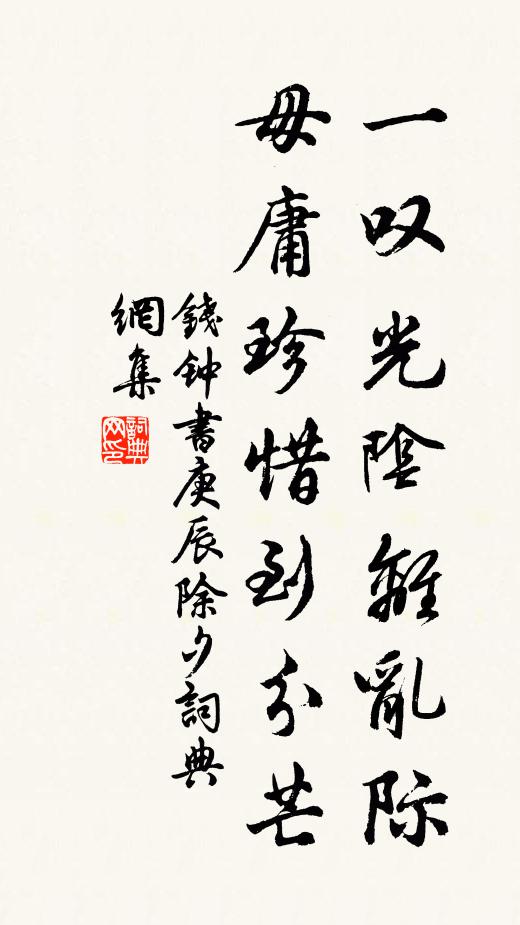 一叹光陰離亂际
毋庸珍惜到分芒
錢钟書庚辰除夕詞典
網集
詞典网印